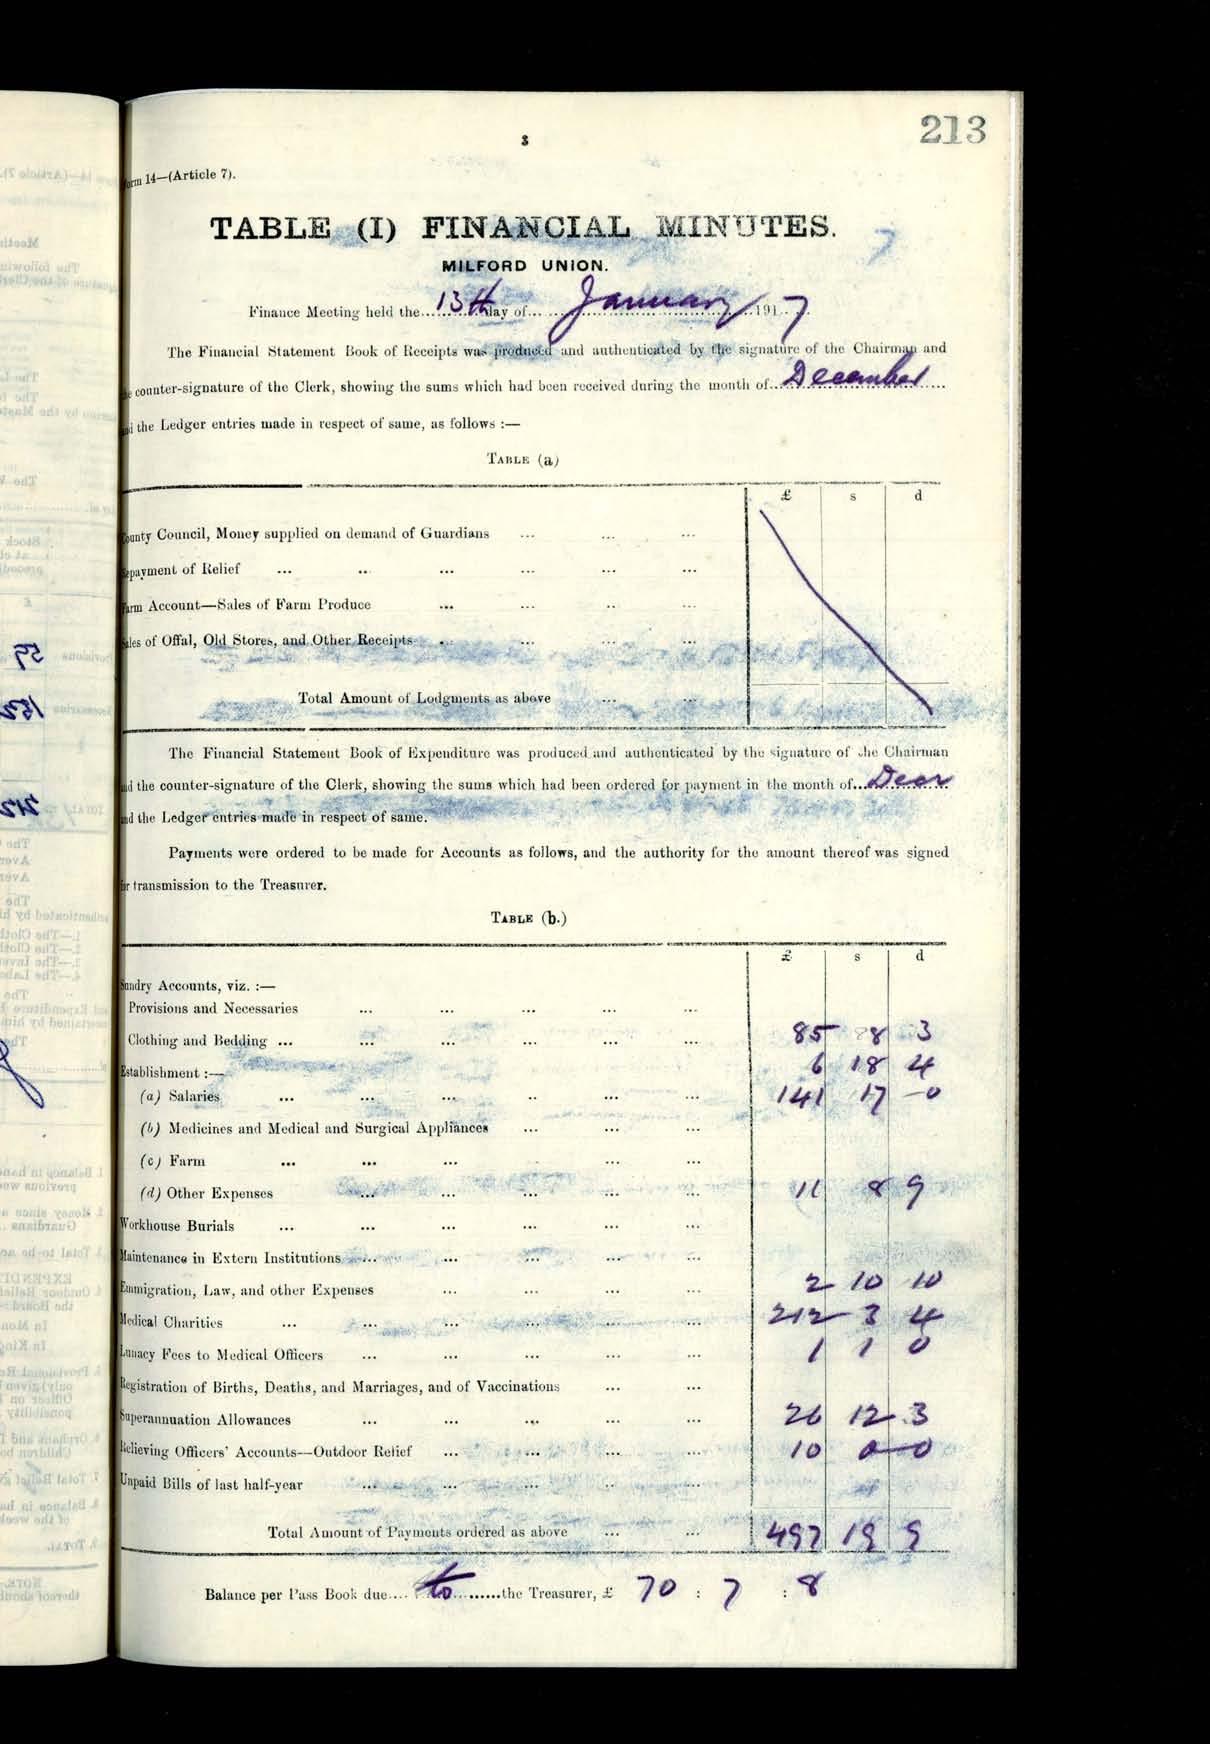 213
3
Form 14—(Article 7).
TABLE (I) FINANCIAL MINUTES.
MILFORD UNION.
Finance Meeting held the 13th day of January 1917
The Financial Statement Book of Receipts was produced and authenticated by the signature of the Chairman and
the counter-signature of the Clerk, showing the sums which had been received during the month of December
and the Ledger entries made in respect of same, as follows :—
TABLE (a)
£ s d
County Council, Money supplied on demand of Guardians ... ... ...
Repayment of Relief ... ... ... ... ... ...
Farm Account—Sales of Farm Produce ... ... ... ...
Sales of Offal, Old Stores, and Other Receipts ... ... ...
Total Amount of Lodgments as above ... ...
The Financial Statement Book of Expenditure was produced and authenticated by the signature of the Chairman
and the counter-signature of the Clerk, showing the sums which had been ordered for payment in the month of... Decr
and the Ledger entries made in respect of same.
Payments were ordered to be made for Accounts as follows, and the authority for the amount thereof was signed
for transmission to the Treasurer.
TABLE (b.)
£ s d
Sundry Accounts, viz. :—
Provisions and Necessaries ... ... ... ... ...
Clothing and Bedding ... ... ... ... ... ... 85 8 3
Establishment :— 6 18 4
(a) Salaries ... ... ... ... ... ... 141 17 0
(b) Medicines and Medical and Surgical Appliances ... ... ...
(c) Farm ... ... ... ... ... ...
(d) Other Expenses ... ... ... ... ... 11 8 9
Workhouse Burials ... ... ... ... ... ...
Maintenance in Extern Institutions ... ... ... ... ...
Emmigration, Law, and other Expenses ... ... ... ... 2 10 10
Medical Charities ... ... ... ... ... ... 212 3 4
Lunacy Fees to Medical Officers ... ... ... ... ... 1 1 0
Registration of Births, Deaths, and Marriages, and of Vaccinations ... ...
Superannuation Allowances ... ... ... ... ... 26 12 3
Relieving Officers' Accounts—Outdoor Relief ... ... ... ... 10 0 0
Unpaid Bills of last half-year ... ... ... ... ...
Total Amount of Payments ordered as above ... ... 497 19 9
Balance per Pass Book due.... to .......the Treasurer, £ 70 : 7 : 8